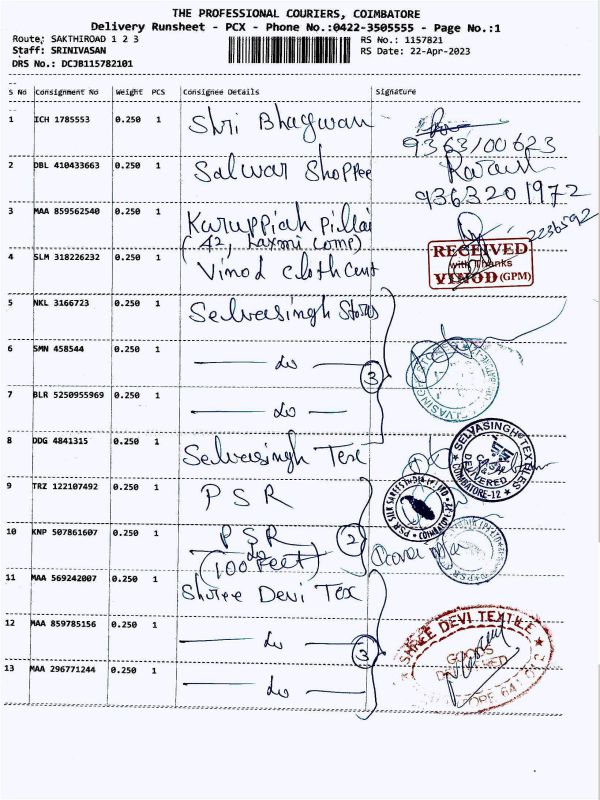 THE PROFESSIONAL COURIERS, COIMBATORE
Delivery Runsheet - PCX - Phone No.:0422-3505555 - Page No.:1
Route: SAKTHIROAD 1 2 3
RS No.: 1157821
Staff: SRINIVASAN
RS Date: 22-Apr-2023
DRS No.: DCJB115782101
S No Consignment No Weight PCS Consignee Details Signature
1 ICH 1785553 0.250 1 Shri Bhagwan
9363100623
2 DBL 410433663 0.250 1 Salwar Shoppee
9363201972
3 MAA 859562540 0.250 1 Karuppiah Pillai
(42, Laxmi Comp)
2236592
4 SLM 318226232 0.250 1 Vinod Cloth Cent
RECEIVED
with Thanks
VINOD (GPM)
5 NKL 3166723 0.250 1 Selvasingh Stores
6 SMN 458544 0.250 1 do
3
7 BLR 5250955969 0.250 1 do
8 DDG 4841315 0.250 1 Selvasingh Tex
SELVASINGH TEXTILES
DELIVERED
COIMBATORE-12
9 TRZ 122107492 0.250 1 PSR
10 KNP 507861607 0.250 1 PSR
do
2
(100 Feet)
11 MAA 569242007 0.250 1 Shree Devi Tex
12 MAA 859785156 0.250 1 do
3
13 MAA 296771244 0.250 1 do
SHREE DEVI TEXTILE
GOODS
DELIVERED